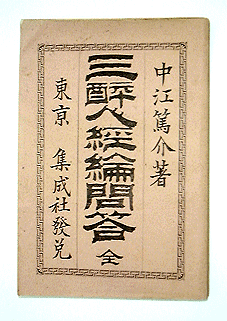 中江篤介著
三酔人經綸問答 全
東京 集成社發兌